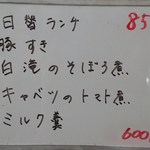 日替ランチ 85
豚すき
白滝のそぼろ煮
キャベツのトマト煮
ミルク羹
600